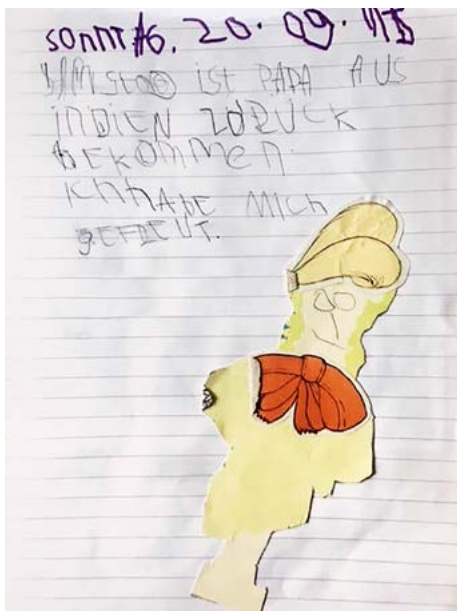 sonnt#6. 20. 09. 
SAMSTAG ist PAPA AUS
iNDiEN ZURUCK
BEKOMMEN.
ICH HABE MICH
gEFREUT.